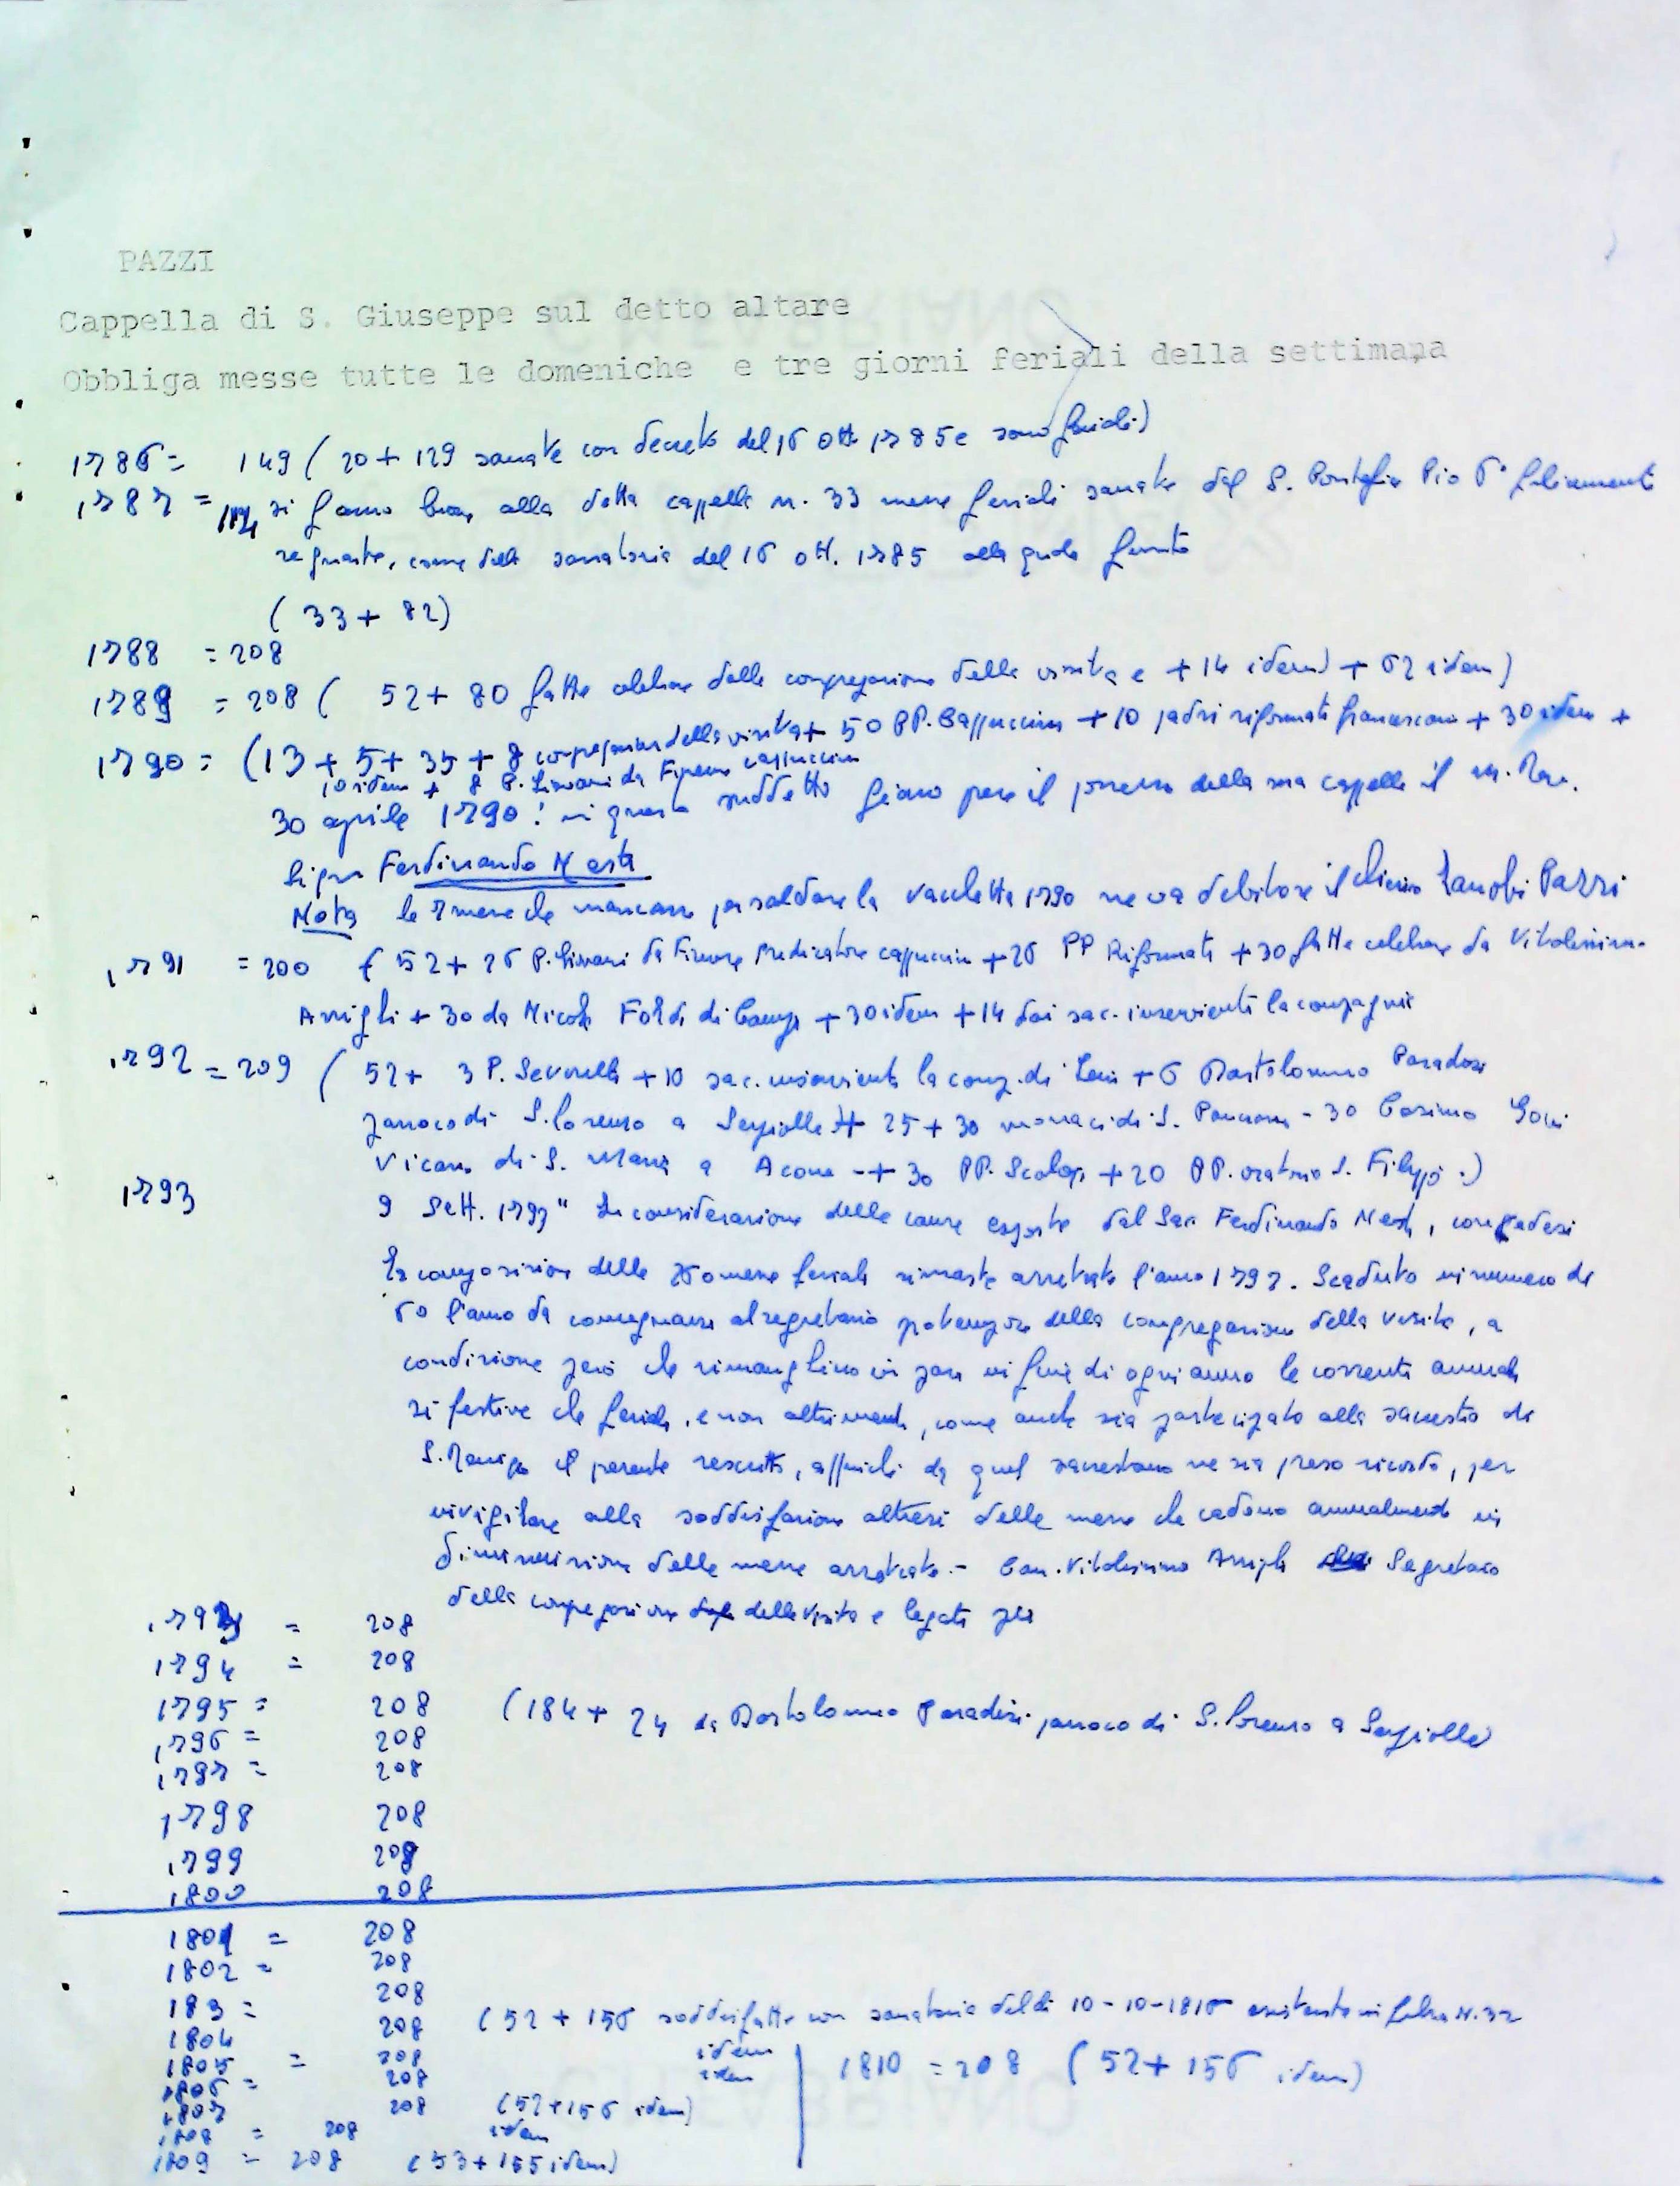 PAZZI
Cappella di S. Giuseppe sul detto altare
Obbliga messe tutte le domeniche e tre giorni feriali della settimana
1786 = 149 ( 20 + 129 sanate con decreto del 16 ott 1785 e sono feriali)
1787 = 114 si fanno buone alla detta cappella n. 33 messe feriali sanate dal S. Pontefice Pio 6° felicemente
regnante, come dalla sanatoria del 16 ott. 1785
( 33 + 82)
1788 = 208
1789 = 208 ( 52 + 80 fatte celebrare dalla congregazione della visita e + 14 idem) + 62 idem)
1790 = (13 + 5 + 35 + 8 congregazione della visita + 50 PP. Cappuccini + 10 padri riformati francescani + 30 idem +
10 idem + 8 P. da Firenze cappuccino
30 aprile 1790: in questo suddetto giorno prese il possesso della sua cappella il m. Rev.
Signor Ferdinando Nesti
Nota le 7 messe che mancano per saldare la vacchetta 1790 ne va debitore il Chierico Zanobi Pazzi
1791 = 200 ( 52 + 26 P. da Firenze Predicatore cappuccino + 26 PP Riformati + 30 fatte celebrare da Vitaliniano
Arrighi + 30 da Nicola di Campi + 30 idem + 14 dai sac. inservienti la compagnia
1792 = 209 ( 52 + 3 P. + 10 sac. inservienti la comp. di + 6 Bartolomeo Paradisi
parroco di S. Lorenzo a Serpiolle + 25 + 30 monaci di S. - 30 Cosimo
Vicario di S. Maria a Acone - + 30 PP. Scolopi + 20 PP. oratorio S. Filippo.)
1793 9 Sett. 1793 " In considerazione delle cause esposte dal Sac. Ferdinando Nesti, concedesi
la composizione delle messe feriali rimaste arretrate l'anno 1792. in numero di
60 l'anno da consegnarsi al segretario della congregazione della visita, a
condizione però che rimanghino in pari in fine di ogni anno le correnti annuali
sì festive che feriali, e non altrimenti, come anche sia partecipato alla sacrestia di
S. il presente rescritto, affinché da quel sacrestano ne sia preso ricordo, per
invigilare alla soddisfazione altresì delle messe che cadono annualmente in
diminuzione delle messe arretrate. - Can. Vitaliniano Arrighi Segretario
della congregazione della Visita e legati pii
1793 = 208
1794 = 208
1795 = 208 (184 + 24 da Bartolomeo Paradisi parroco di S. Lorenzo a Serpiolle)
1796 = 208
1797 = 208
1798 208
1799 208
1800 208
1801 = 208
1802 = 208
183 = 208
1804 208 (52 + 156 soddisfatte con sanatoria del dì 10-10-1816 esistente in filza N. 32
1805 = 208 idem
1806 = 208 idem
1807 208 (52 + 156 idem)
1808 = 208 idem
1809 = 208 (53 + 155 idem)
1810 = 208 (52 + 156 idem)